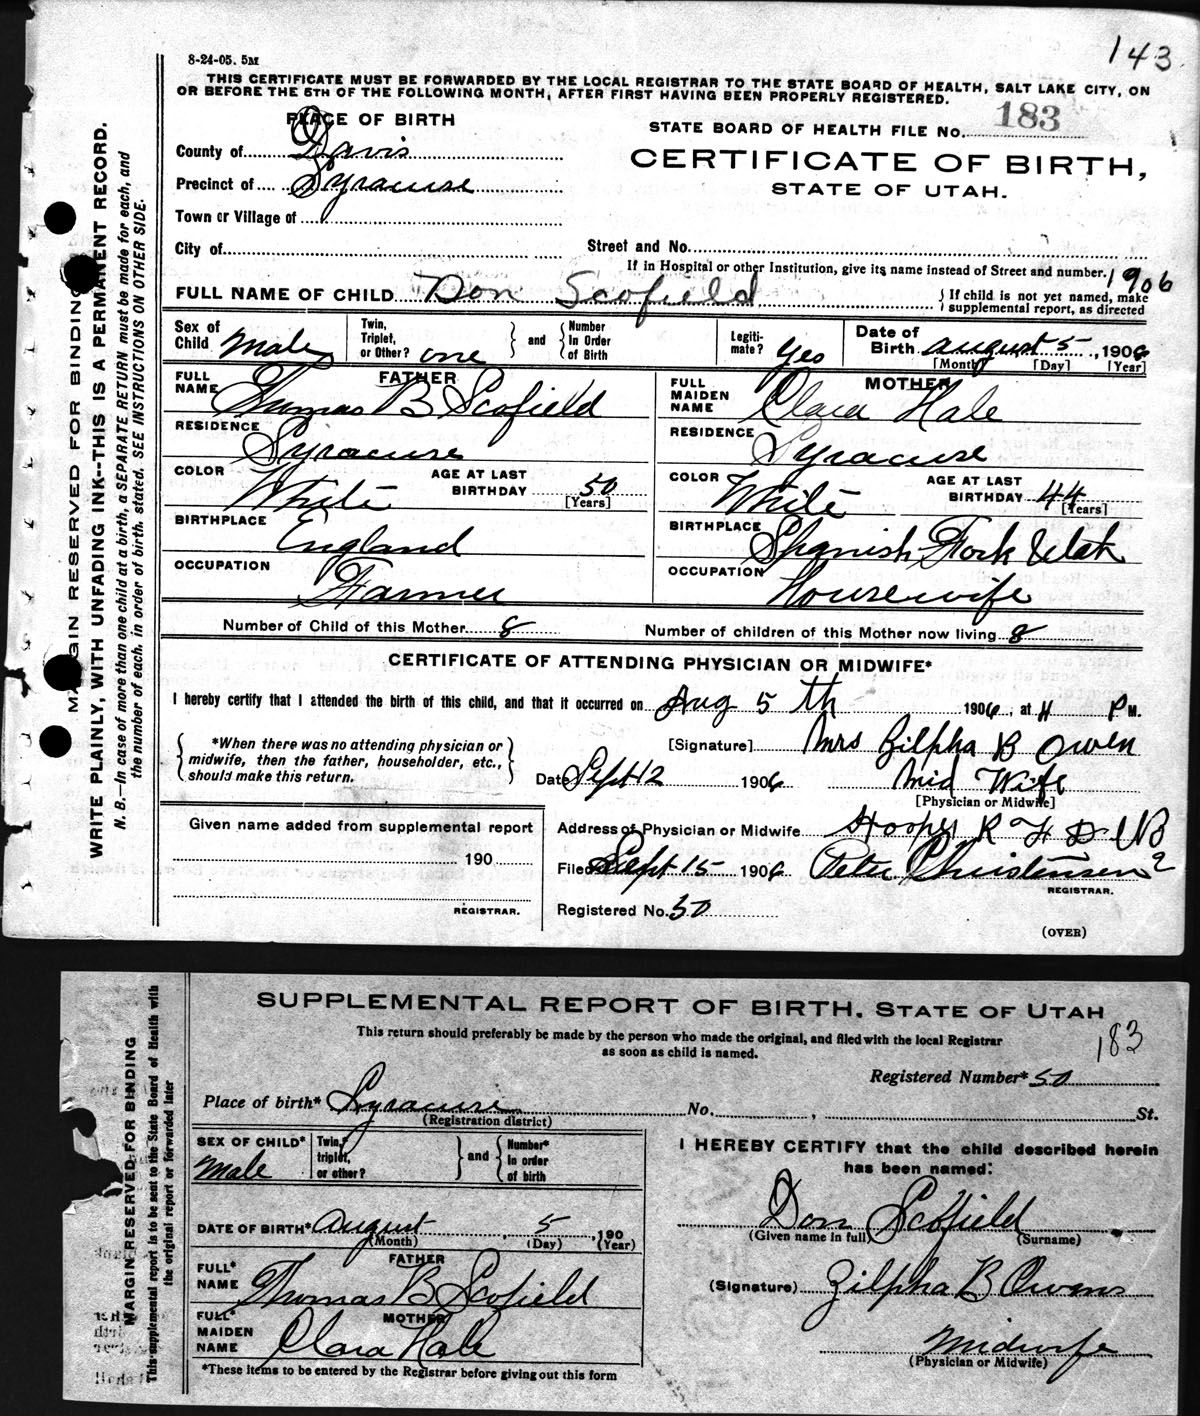 143
8-24-05. 5M
THIS CERTIFICATE MUST BE FORWARDED BY THE LOCAL REGISTRAR TO THE STATE BOARD OF HEALTH, SALT LAKE CITY, ON
OR BEFORE THE 5TH OF THE FOLLOWING MONTH, AFTER FIRST HAVING BEEN PROPERLY REGISTERED.
PLACE OF BIRTH
STATE BOARD OF HEALTH FILE No. 183
County of Davis
CERTIFICATE OF BIRTH,
Precinct of Syracuse
STATE OF UTAH.
Town or Village of
City of
Street and No.
If in Hospital or other Institution, give its name instead of Street and number. 1906
FULL NAME OF CHILD Don Scofield
} If child is not yet named, make
supplemental report, as directed
Sex of Child Male
Twin, Triplet, or Other? one } and { Number In Order of Birth
Legiti- mate? Yes
Date of Birth August 5, 1906
[Month] [Day] [Year]
FATHER
FULL NAME Thomas B Scofield
MOTHER
FULL MAIDEN NAME Clara Hale
RESIDENCE Syracuse
RESIDENCE Syracuse
COLOR White AGE AT LAST BIRTHDAY 50 [Years]
COLOR White AGE AT LAST BIRTHDAY 44 [Years]
BIRTHPLACE England
BIRTHPLACE Spanish Fork Utah
OCCUPATION Farmer
OCCUPATION Housewife
Number of Child of this Mother 8
Number of children of this Mother now living 8
CERTIFICATE OF ATTENDING PHYSICIAN OR MIDWIFE*
I hereby certify that I attended the birth of this child, and that it occurred on Aug 5 th 1906, at 4 P M.
{ *When there was no attending physician or
midwife, then the father, householder, etc.,
should make this return. }
[Signature] Mrs Zilpha B Owen
Date Sept 12 1906 Mid Wife
[Physician or Midwife]
Given name added from supplemental report
190
REGISTRAR.
Address of Physician or Midwife Hooper R F D No
2
Filed Sept 15 1906 Peter Christensen
REGISTRAR.
Registered No. 50
(OVER)
MARGIN RESERVED FOR BINDING
WRITE PLAINLY, WITH UNFADING INK--THIS IS A PERMANENT RECORD.
N. B.—In case of more than one child at a birth, a SEPARATE RETURN must be made for each, and
the number of each, in order of birth stated. SEE INSTRUCTIONS ON OTHER SIDE.
SUPPLEMENTAL REPORT OF BIRTH. STATE OF UTAH
This return should preferably be made by the person who made the original, and filed with the local Registrar
as soon as child is named.
183
Registered Number* 50
Place of birth* Syracuse No. , St.
(Registration district)
SEX OF CHILD* Male
Twin, triplet, or other? } and { Number* In order of birth
I HEREBY CERTIFY that the child described herein
has been named:
Don Scofield
(Given name in full) (Surname)
DATE OF BIRTH* August 5, 190
(Month) (Day) (Year)
FATHER
FULL* NAME Thomas B Scofield
(Signature) Zilpha B Owens
MOTHER
FULL* MAIDEN NAME Clara Hale
Midwife
(Physician or Midwife)
*These items to be entered by the Registrar before giving out this form
MARGIN RESERVED FOR BINDING
This supplemental report is to be sent to the State Board of Health with
the original report or forwarded later